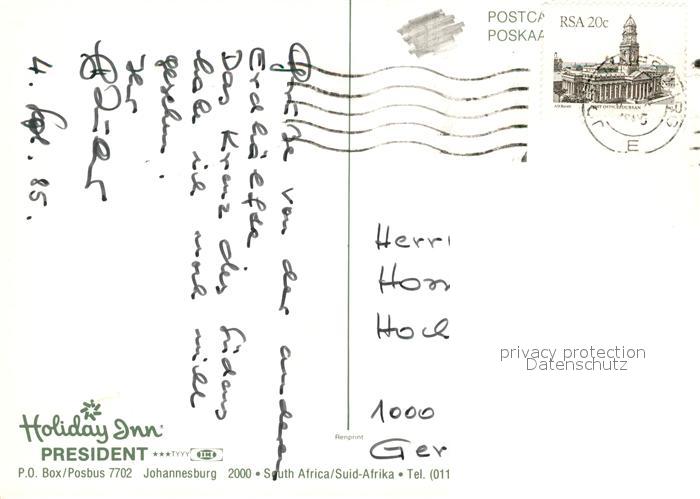 POSTCA
POSKAA
RSA 20c
Grüße von der anderen
Erdhälfte
Das Kreuz des Südens
habe ich noch nicht
gesehn.
4. Sept. 85.
Herrn
Hoch
1000
Ger
privacy protection
Datenschutz
Renprint
Holiday Inn
PRESIDENT ★★★TYYY
P.O. Box/Posbus 7702 Johannesburg 2000 • South Africa/Suid-Afrika • Tel. (011